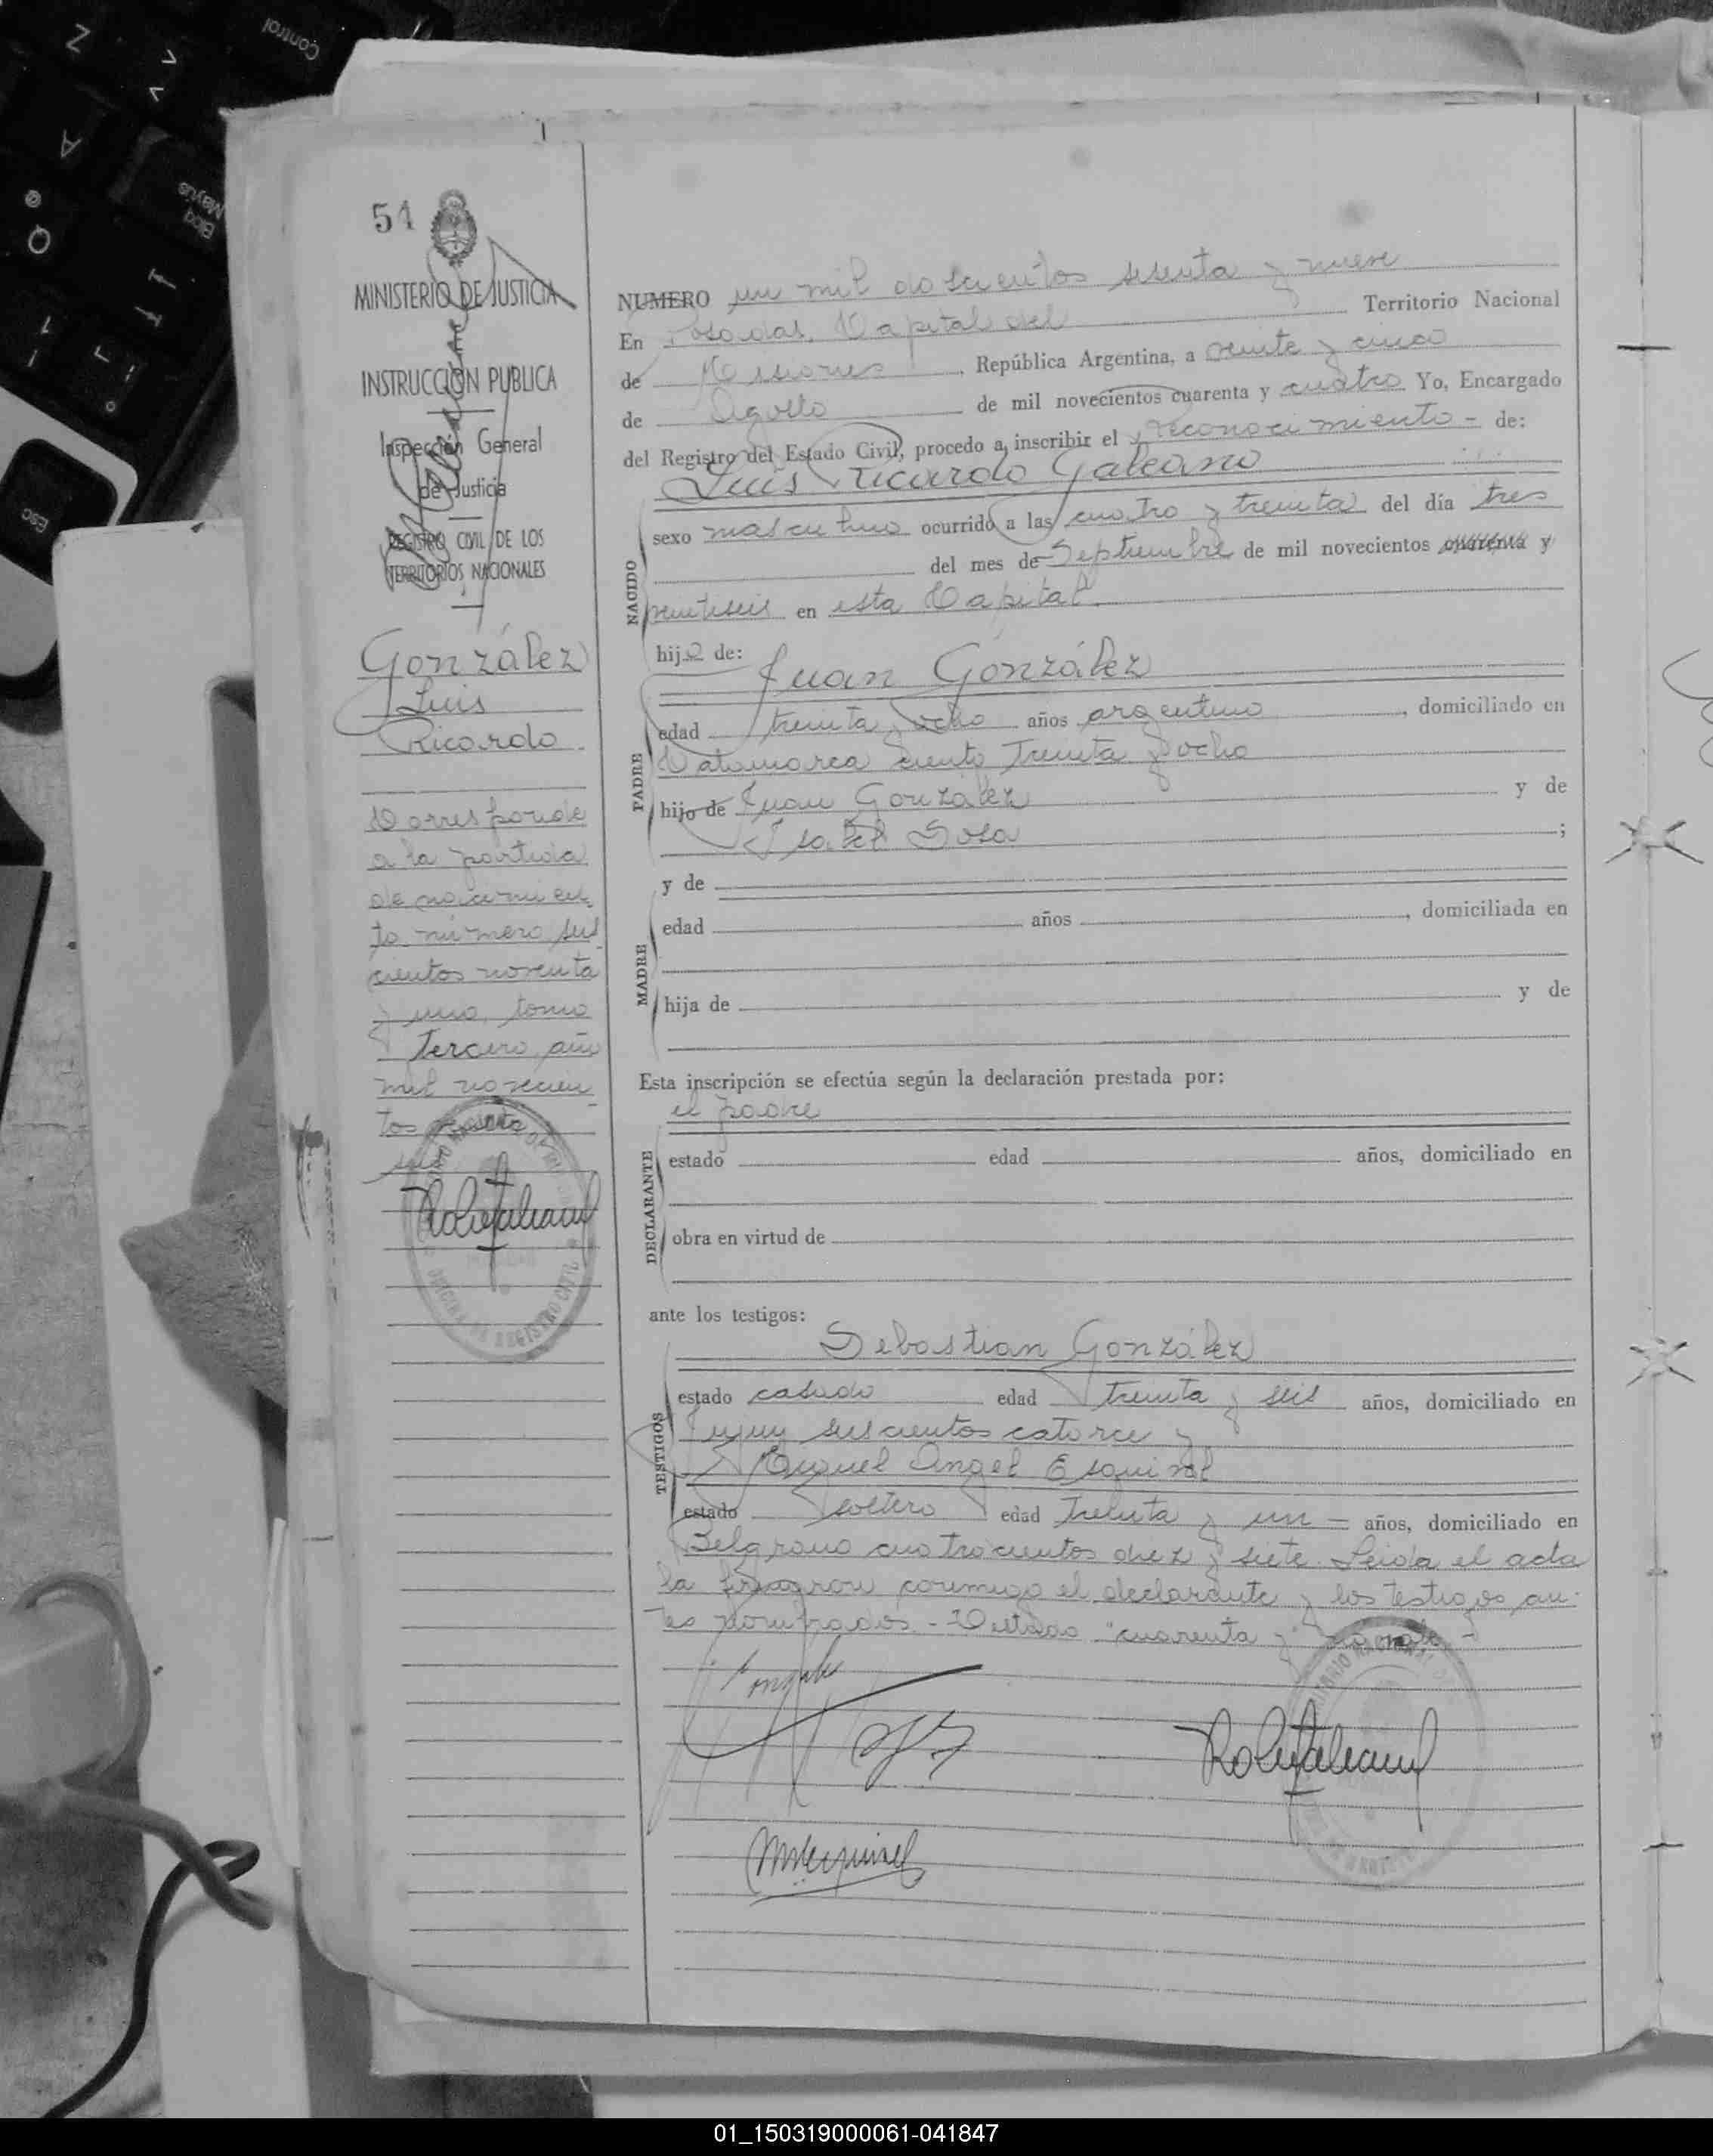 54
MINISTERIO DE JUSTICIA
INSTRUCCIÓN PUBLICA
Inspección General
de Justicia
REGISTRO CIVIL DE LOS
TERRITORIOS NACIONALES
Reconocimiento
González
Luis
Ricardo
Corresponde
a la partida
de nacimien
to número seis
cientos noventa
y uno, tomo
tercero, año
mil novecien
tos
NUMERO un mil doscientos sesenta y nueve
En Posadas, Capital del Territorio Nacional
de Misiones, República Argentina, a veinte y cinco
de Agosto de mil novecientos cuarenta y cuatro Yo, Encargado
del Registro del Estado Civil, procedo a inscribir el reconocimiento - de:
Luis Ricardo Galeano
NACIDO
sexo masculino ocurrido a las cuatro y treinta del día tres
del mes de Septiembre de mil novecientos cuarenta y
veintiseis en esta Capital
hijo de: Juan González
PADRE
edad treinta y ocho años argentino, domiciliado en
Catamarca ciento treinta y ocho
hijo de Juan González y de
Isabel Sosa ;
MADRE
y de
edad años , domiciliada en
hija de y de
Esta inscripción se efectúa según la declaración prestada por:
el padre
DECLARANTE
estado edad años, domiciliado en
obra en virtud de
ante los testigos:
Sebastian González
TESTIGOS
estado casado edad treinta y seis años, domiciliado en
Jujuy seiscientos catorce y
Miguel Angel Esquivel
estado soltero edad treinta y un - años, domiciliado en
Belgrano cuatrocientos diez y siete. Leida el acta
la firmaron conmigo el declarante y los testigos an-
tes nombrados. - Testado "cuarenta y" no vale -
Z
Control
A
Bloq
Mayús
Q
Esc
01_150319000061-041847